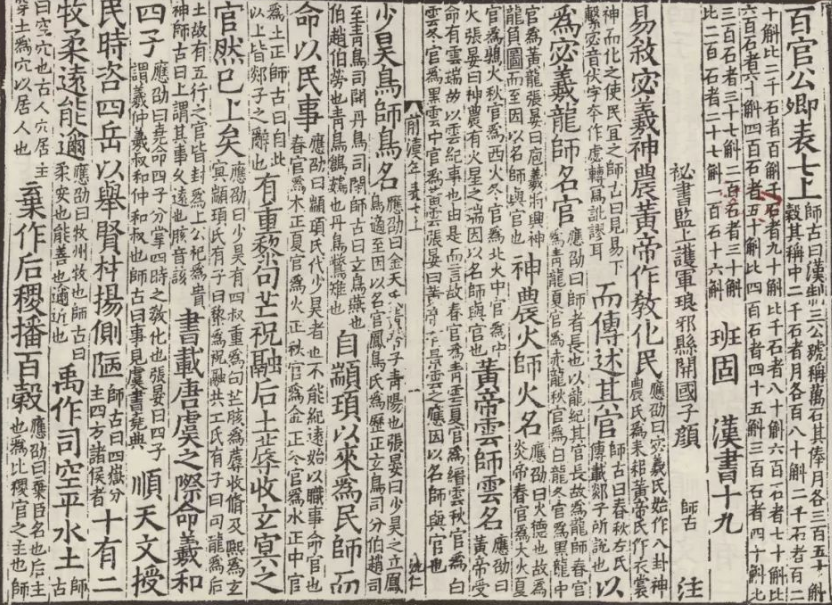 百官公卿表七上
師古曰漢制三公號稱萬石其俸月各三百五十斛
穀其稱中二千石者月各百八十斛二千石者百二
十斛比二千石者百斛千石者九十斛比千石者八十斛六百石者七十斛比
六百石者六十斛四百石者五十斛比四百石者四十五斛三百石者四十斛比
三百石者三十七斛二百石者三十斛
比二百石者二十七斛一百石十六斛
班固　漢書十九
秘書監上護軍琅邪縣開國子顏　師古　注
易敘宓羲神農黃帝作教化民
應劭曰宓羲氏始作八卦神
農氏為耒耜黃帝氏作衣裳
神而化之使民宜之師古曰見易下
繫宓音伏字本作虙轉寫訛謬耳
而傳述其官
師古曰春秋左氏
傳載郯子所說也
以
為宓羲龍師名官
應劭曰師者長也以龍紀其官長故為龍師春官
為青龍夏官為赤龍秋官為白龍冬官為黑龍中
官為黃龍張晏曰庖羲將興神
龍負圖而至因以名師與官也
神農火師火名
應劭曰火德也故為
炎帝春官為大火夏
官為鶉火秋官為西火冬官為北火中官為中
火張晏曰神農有火星之瑞因以名師與官也
黃帝雲師雲名
應劭曰
黃帝受
命有雲瑞故以雲紀事也由是而言故春官為青雲夏官為縉雲秋官為白
雲冬官為黑雲中官為黃雲張晏曰黃帝有景雲之應因以名師與官也
前漢年表七上　一
少昊鳥師鳥名
應劭曰金天氏黃帝子青陽也張晏曰少昊之立鳳
鳥適至因以名官鳳鳥氏為歷正玄鳥司分伯趙司
至青鳥司開丹鳥司閉師古曰玄鳥燕也
伯趙伯勞也青鳥鶬鷃也丹鳥鷩雉也
自顓頊以來為民師而
命以民事
應劭曰顓頊氏代少昊者也不能紀遠始以職事命官也
春官為木正夏官為火正秋官為金正冬官為水正中官
為土正師古曰自此
以上皆郯子之辭也
有重黎句芒祝融后土蓐收玄冥之
官然已上矣
應劭曰少昊有四叔重為句芒胲為蓐收脩及熙為玄
冥顓頊氏有子曰黎為祝融共工氏有子曰句龍為后
土故有五行之官皆封為上公祀為貴
神師古曰上謂其事久遠也胲音該
書載唐虞之際命羲和
四子
應劭曰堯命四子分掌四時之教化也張晏曰四子
謂羲仲羲叔和仲和叔也師古曰事見虞書堯典
順天文授
民時咨四岳以舉賢材揚側陋
師古曰四嶽分
主四方諸侯者
十有二
牧柔遠能邇
應劭曰牧州牧也師古曰
柔安也能善也邇近也
禹作司空平水土
師
古
曰空穴也古人穴居主
穿土為穴以居人也
棄作后稷播百穀
應劭曰棄臣名也后主
也為此稷官之主也師